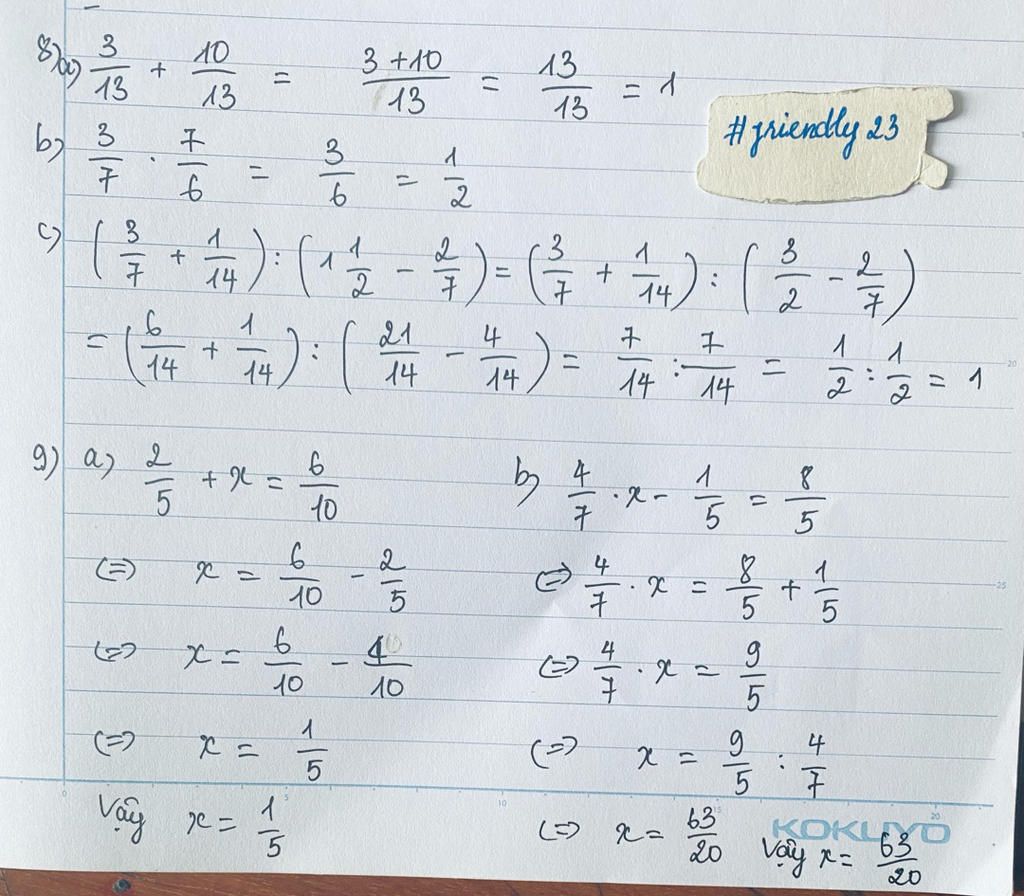 8) a) 3/13 + 10/13 = (3+10)/13 = 13/13 = 1
#friendly 23
b) 3/7 . 7/6 = 3/6 = 1/2
c) (3/7 + 1/14) : (1 1/2 - 2/7) = (3/7 + 1/14) : (3/2 - 2/7)
= (6/14 + 1/14) : (21/14 - 4/14) = 7/14 : 7/14 = 1/2 : 1/2 = 1
9) a) 2/5 + x = 6/10
(=) x = 6/10 - 2/5
(=) x = 6/10 - 4/10
(=) x = 1/5
Vậy x = 1/5
b) 4/7 . x - 1/5 = 8/5
(=) 4/7 . x = 8/5 + 1/5
(=) 4/7 . x = 9/5
(=) x = 9/5 : 4/7
(=) x = 63/20 Vậy x = 63/20
KOKUYO
0 5 10 15 20
20
25